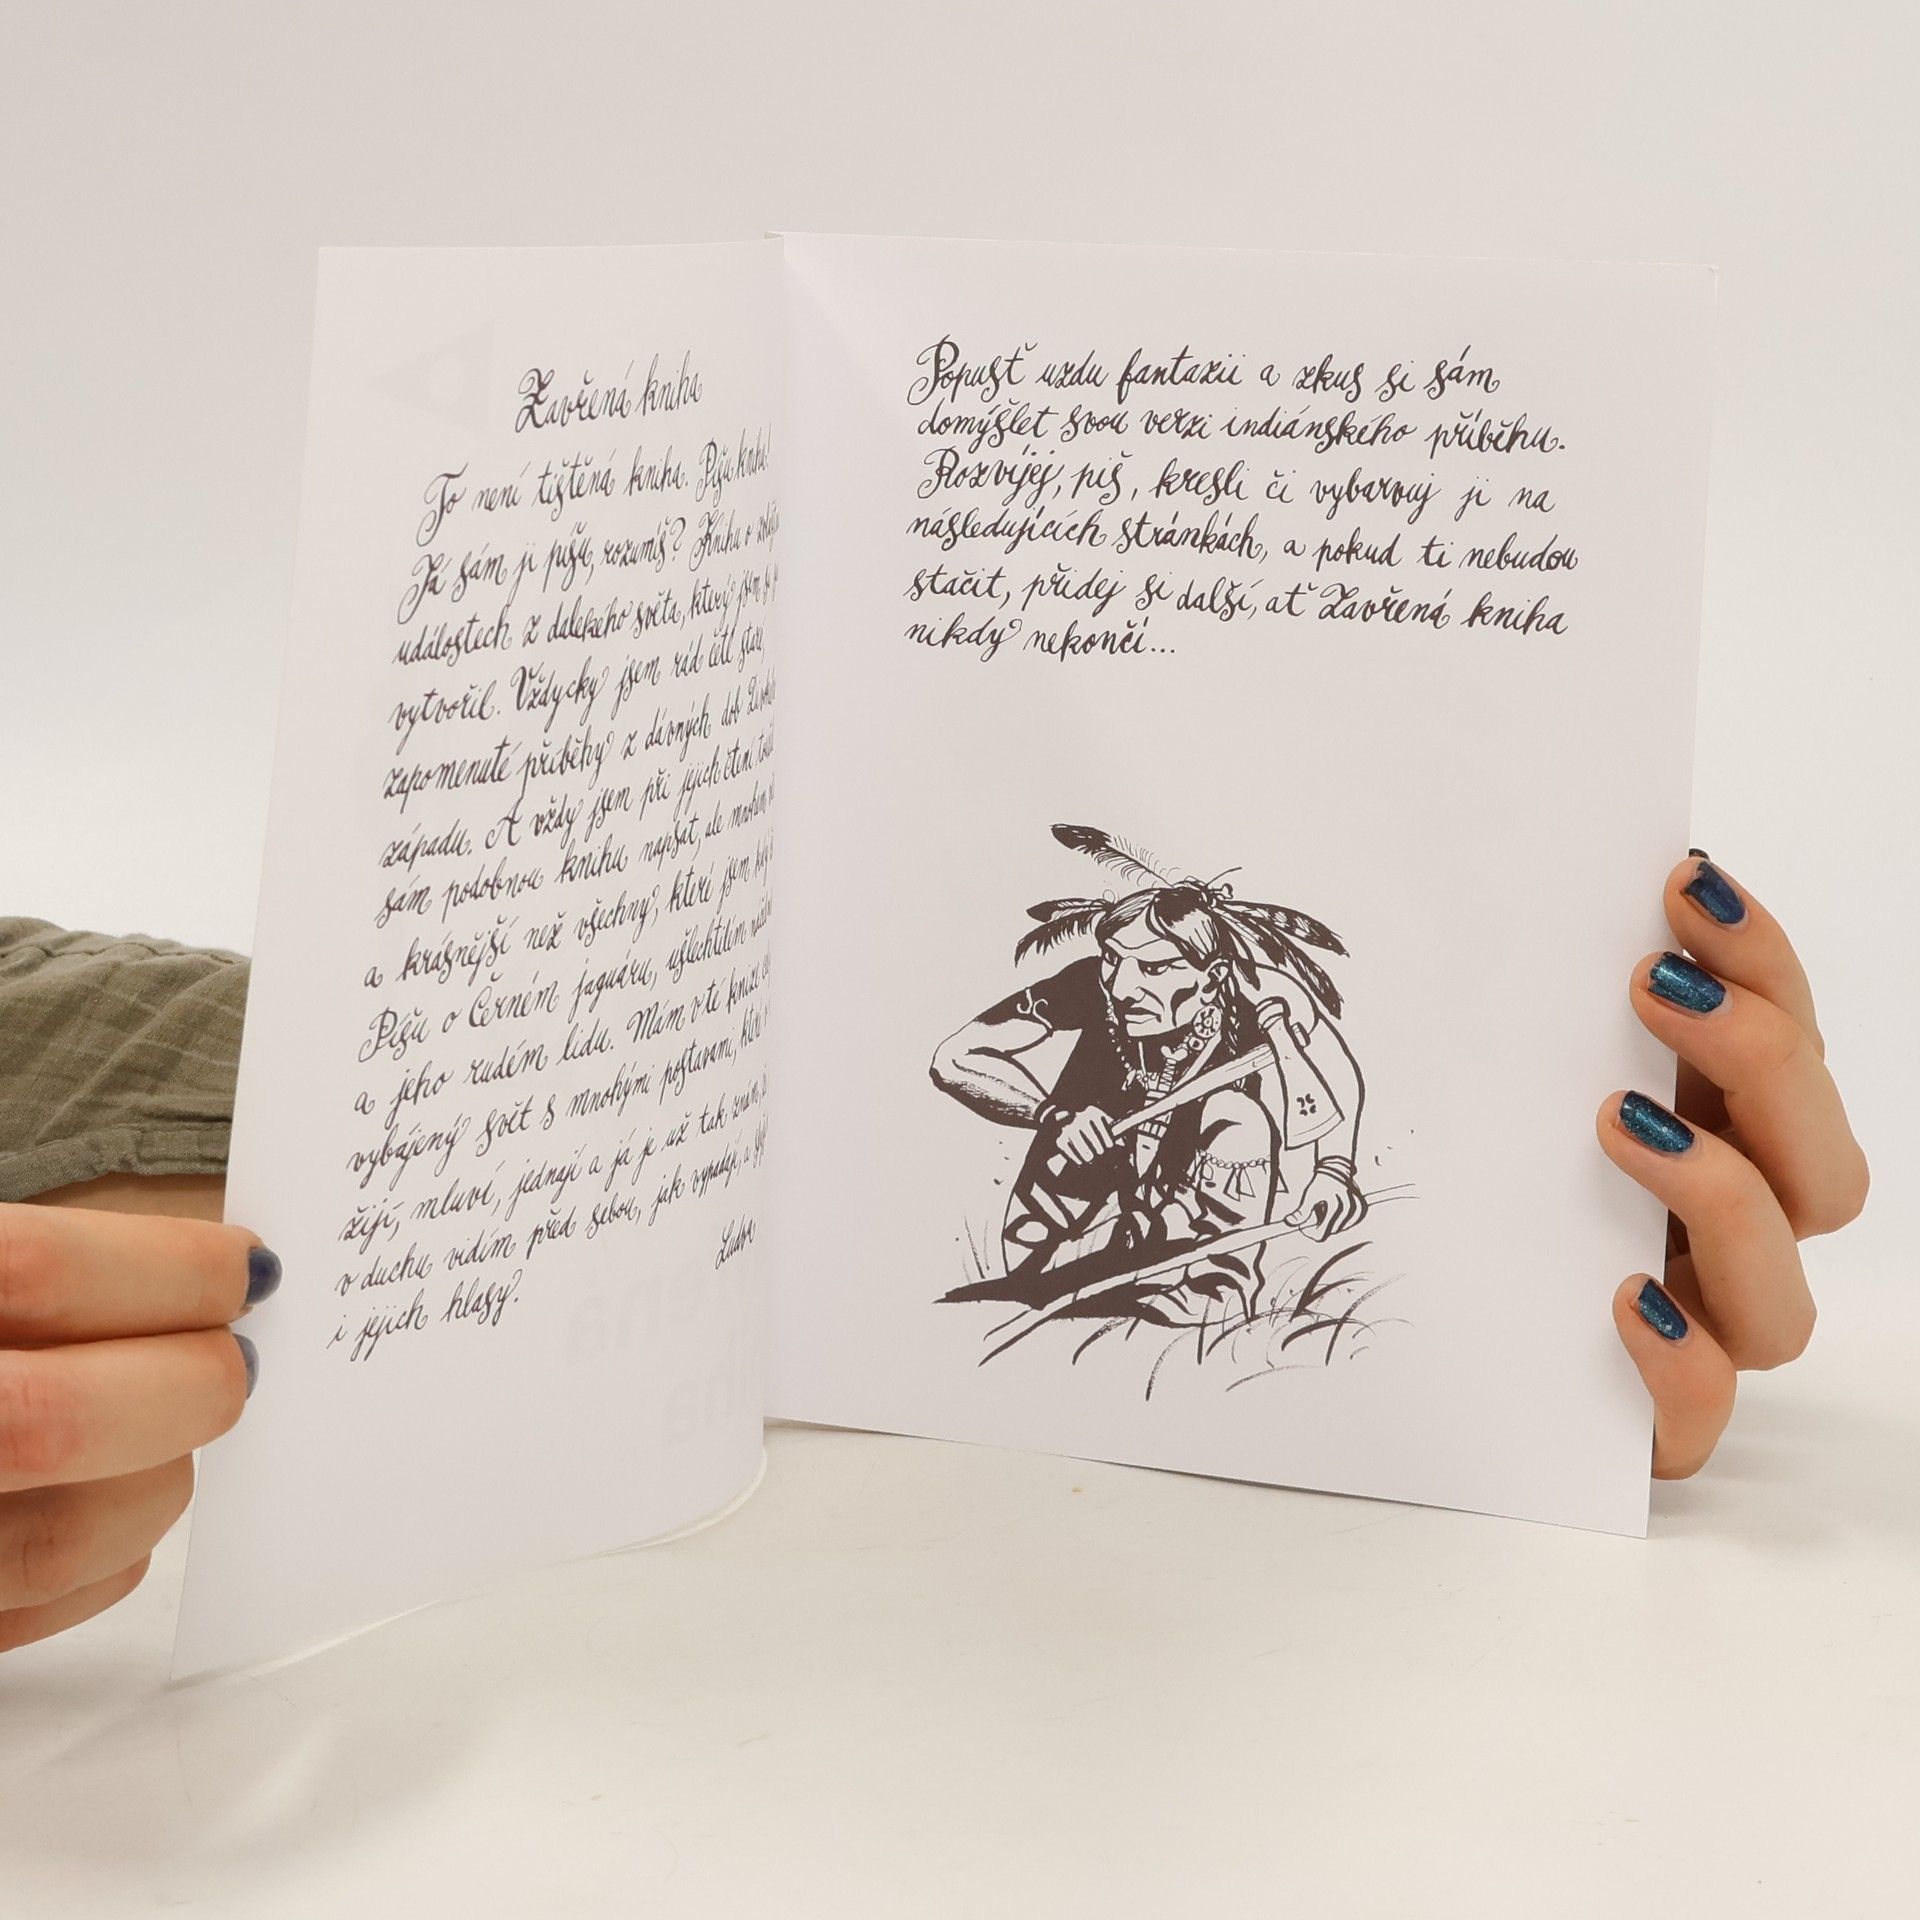 Zavřená kniha
To není tištěná kniha. Píšu knihu!
Já sám ji píšu, rozumíš? Kniha o
událostech z dalekého světa, který jsem
vytvořil. Vždycky jsem rád četl staré,
zapomenuté příběhy z dávných dob
západu. A vždy jsem při jejich čtení
sám podobnou knihu napsat, ale mnohem
a krásnější než všechny, které jsem kdy
Píšu o Černém jaguáru, ušlechtilém
a jeho rudém lidu. Mám v té knize
vybájený svět s mnohými postavami, které
žijí, mluví, jednají a já je už tak znám,
v duchu vidím před sebou, jak vypadají, a
i jejich hlasy.
Ludva
Popusť uzdu fantazii a zkus si sám
domýšlet svou verzi indiánského příběhu.
Rozvíjej, piš, kresli či vybarvuj ji na
následujících stránkách, a pokud ti nebudou
stačit, přidej si další, ať Zavřená kniha
nikdy nekončí...